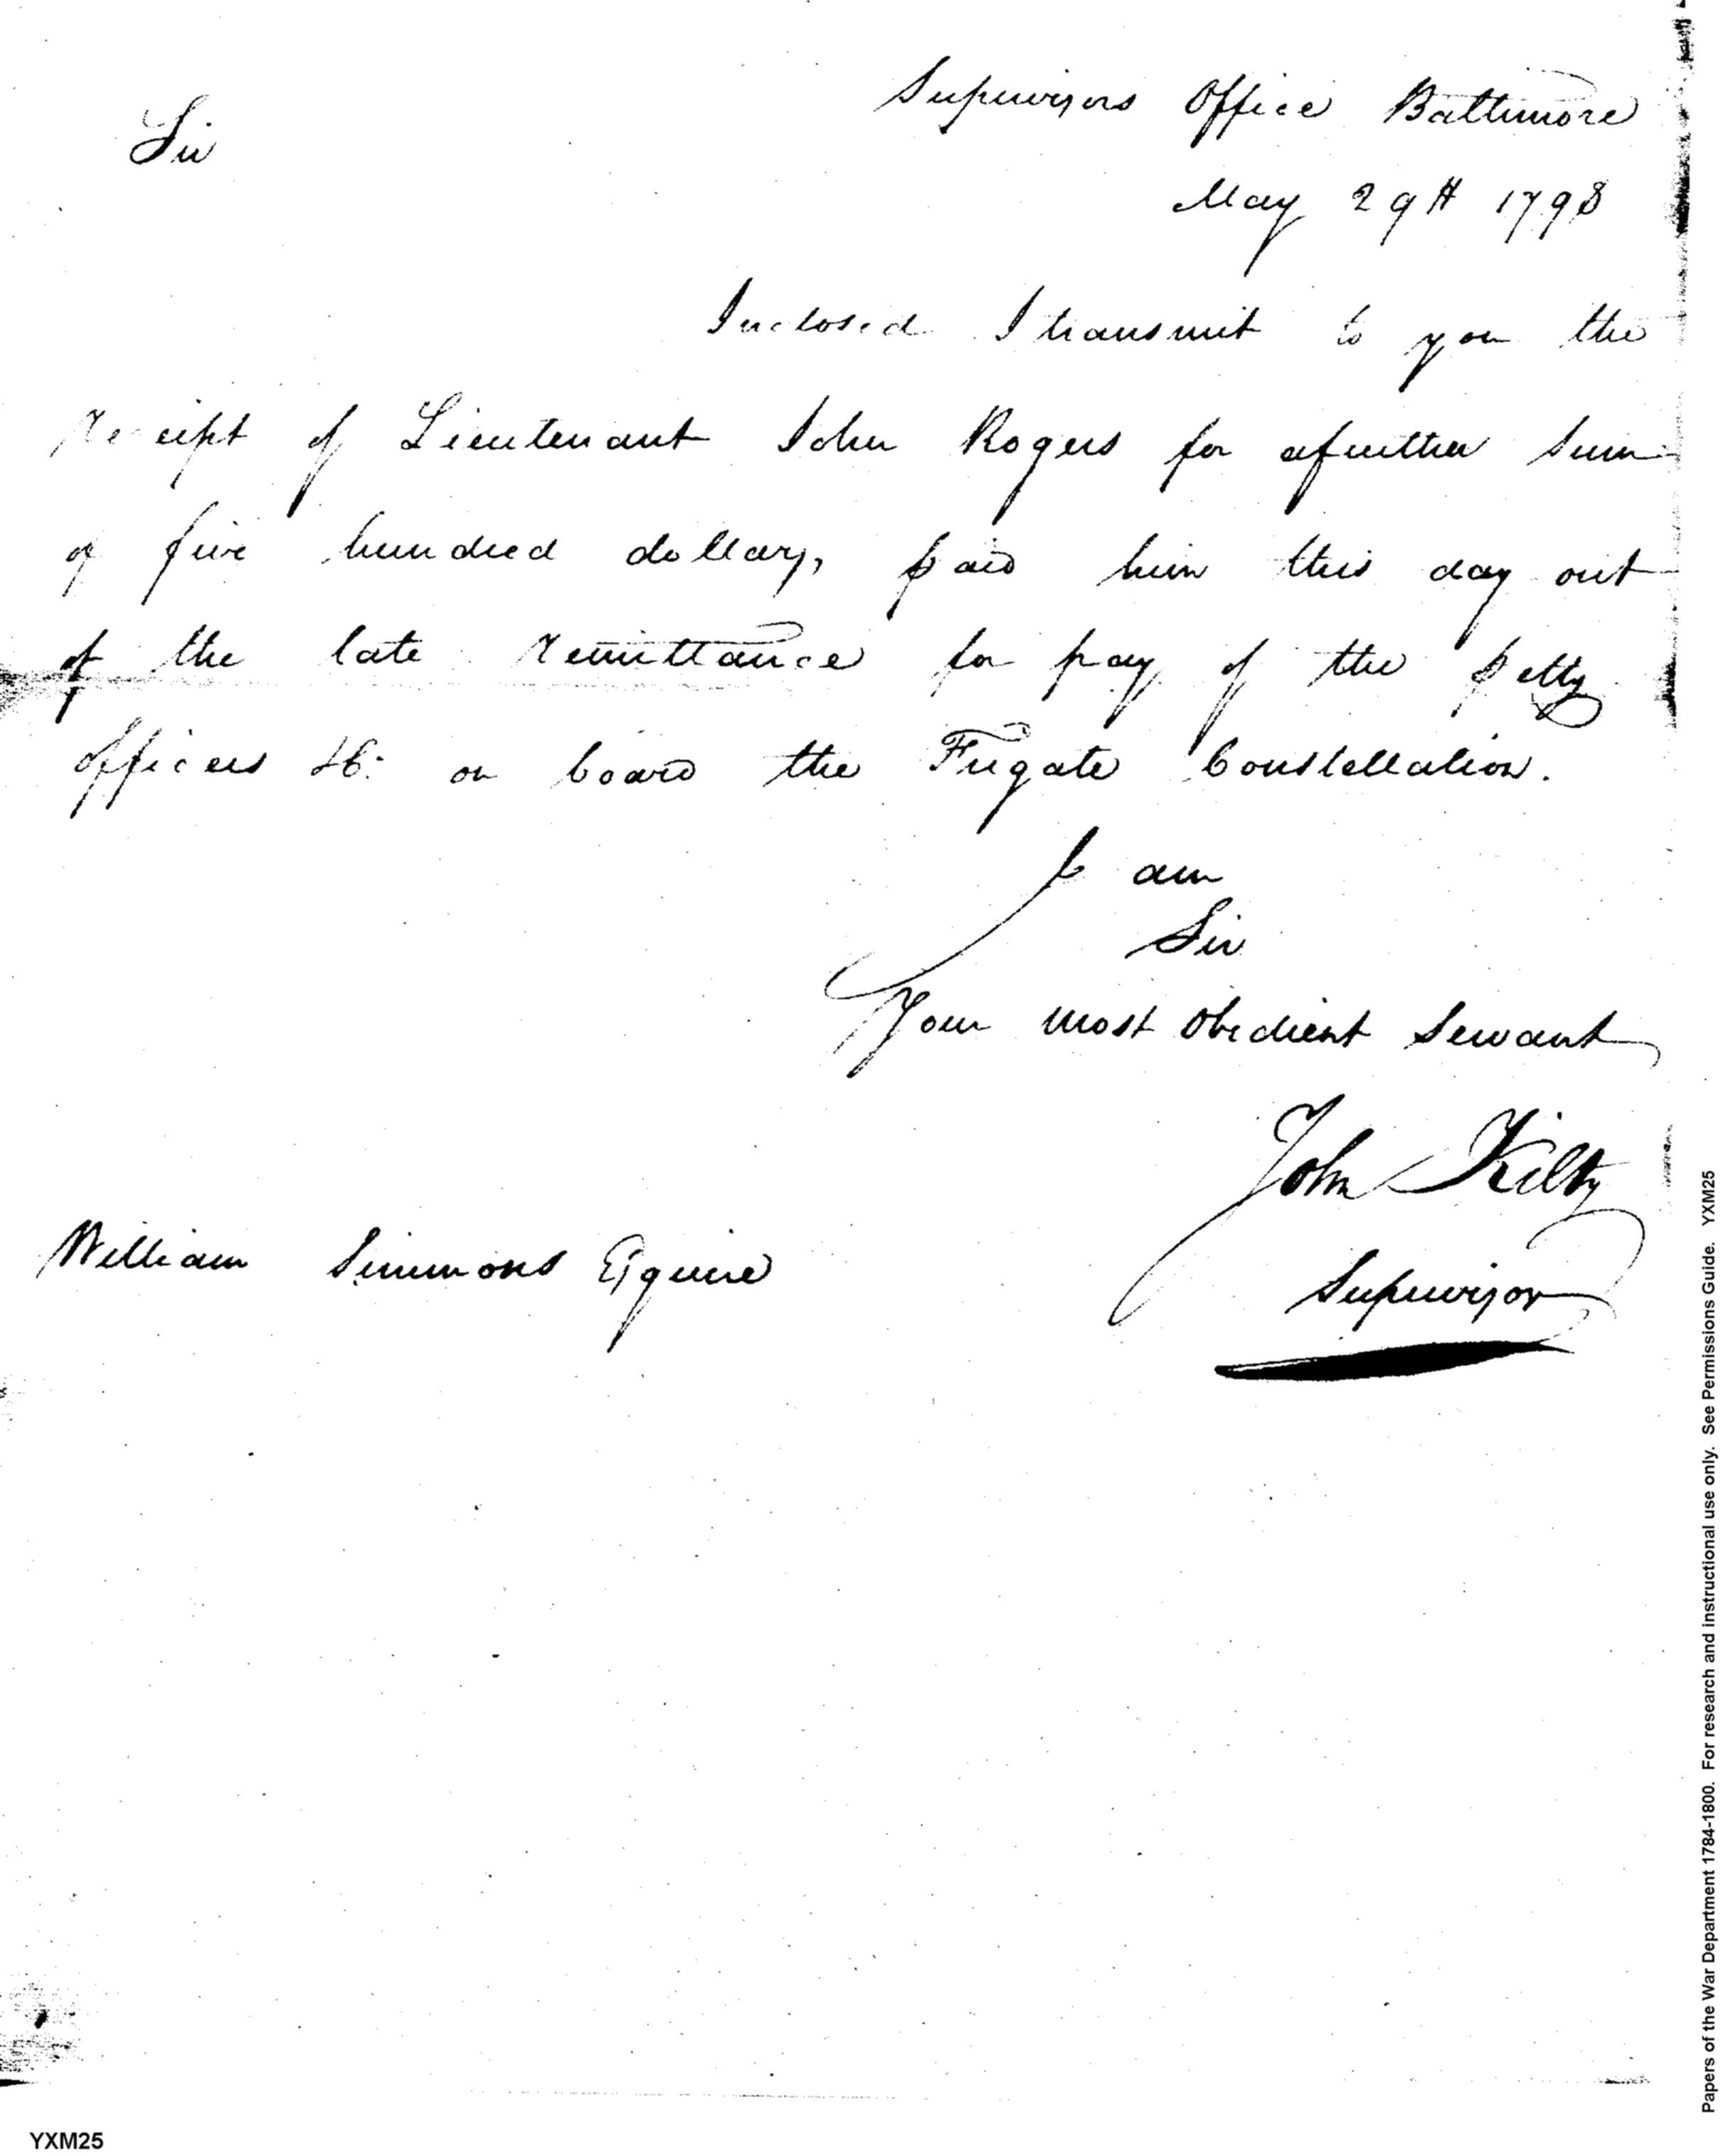 Supervisors Office Baltimore
Sir
May 29th 1798
Inclosed I transmit to you the
receipt of Lieutenant John Rogers for a further sum
of five hundred dollars, paid him this day out
of the late remittance for pay of the petty
officers &c: on board the Frigate Constellation.
I am
Sir
Your most obedient Servant
John Kilty
William Simmons Esquire
Supervisor
Papers of the War Department 1784-1800. For research and instructional use only. See Permissions Guide. YXM25
YXM25